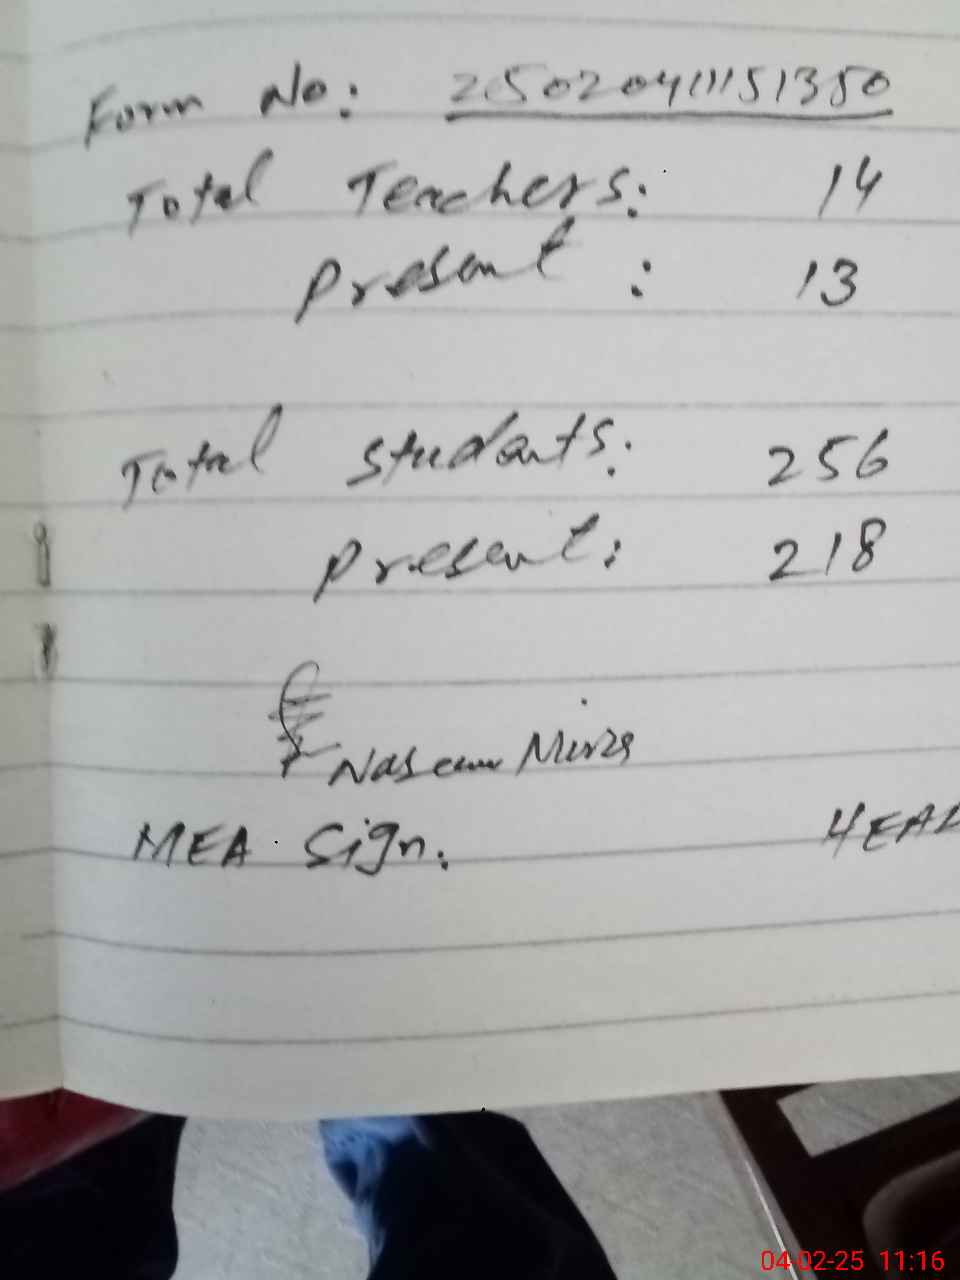 Form No: 25020411151350
Total Teachers: 14
Present: 13
Total Students: 256
Present: 218
Naseem Mirza
MEA Sign. HEAD
04-02-25 11:16